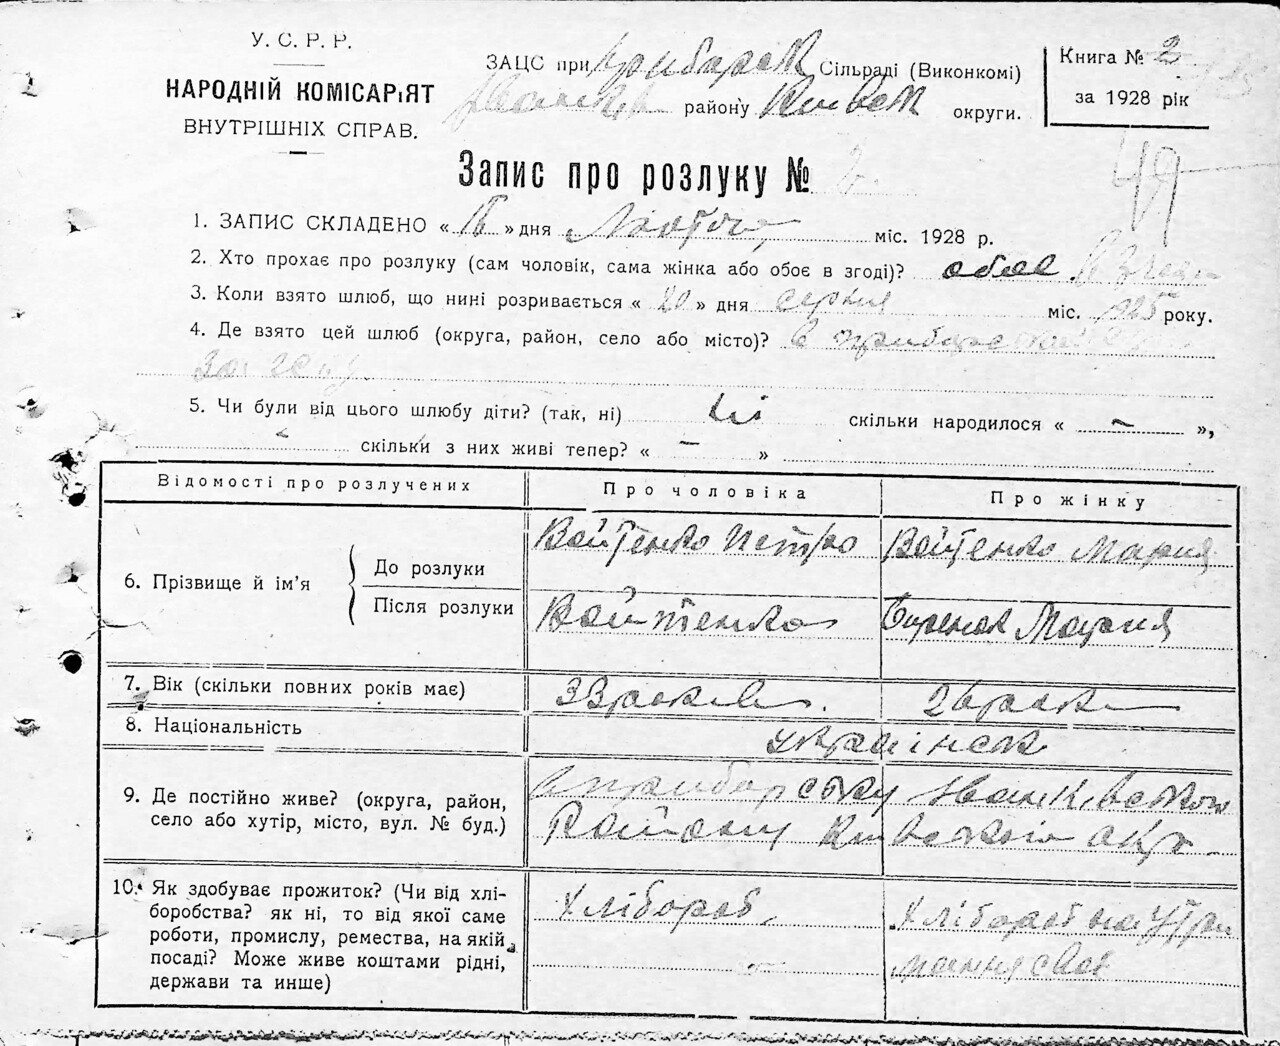 У. С. Р. Р.
НАРОДНІЙ КОМІСАРІЯТ
ВНУТРІШНІХ СПРАВ.
ЗАЦС при Прибарск Сільраді (Виконкомі)
району Київськ округи.
Книга № 2
за 1928 рік
49
Запис про розлуку № 2.
1. ЗАПИС СКЛАДЕНО « 16 » дня Лютого міс. 1928 р.
2. Хто прохає про розлуку (сам чоловік, сама жінка або обоє в згоді)? обоє в згоди
3. Коли взято шлюб, що нині розривається « 20 » дня серпня міс. 1925 року.
4. Де взято цей шлюб (округа, район, село або місто)? в
5. Чи були від цього шлюбу діти? (так, ні) ні скільки народилося « – »,
скільки з них живі тепер? « – »
Відомості про розлучених Про чоловіка Про жінку
6. Прізвище й ім’я
До розлуки Войтенко Петро Войтенко Мария
Після розлуки Войтенко Мария
7. Вік (скільки повних років має) 33 років. 26 роки
8. Національність Українськ
9. Де постійно живе? (округа, район, село або хутір, місто, вул. № буд.)
Іванківськог
Району Київської окр.
10. Як здобуває прожиток? (Чи від хлі-
боробства? як ні, то від якої саме
роботи, промислу, ремества, на якій
посаді? Може живе коштами рідні,
держави та инше)
Хлібороб.
Хлібороб на утри
мання своє